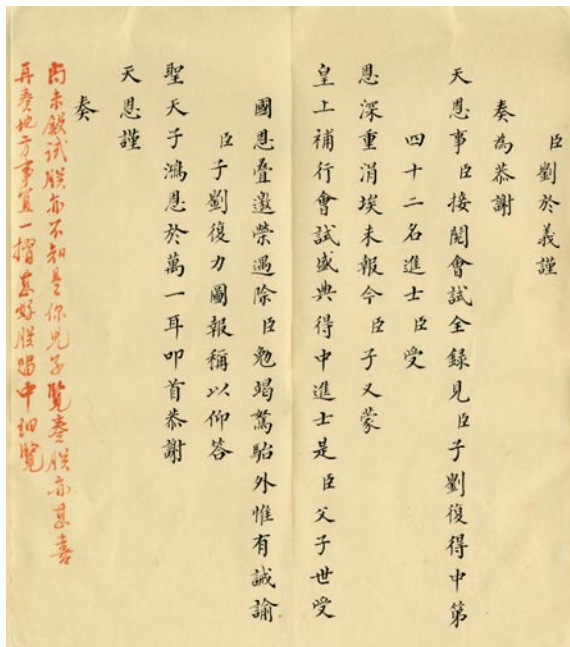 臣劉於義謹
奏為恭謝
天恩事臣接閱會試全錄見臣子劉復得中第
四十二名進士臣受
恩深重涓埃未報今臣子又蒙
皇上補行會試盛典得中進士是臣父子世受
國恩疊邀榮遇除臣勉竭駑駘外惟有誡諭
臣子劉復力圖報稱以仰答
聖天子鴻恩於萬一耳叩首恭謝
天恩謹
奏
尚未殿試朕亦不知是你兒子覽奏朕亦甚喜
再奏地方事宜一摺甚好朕留中細覽